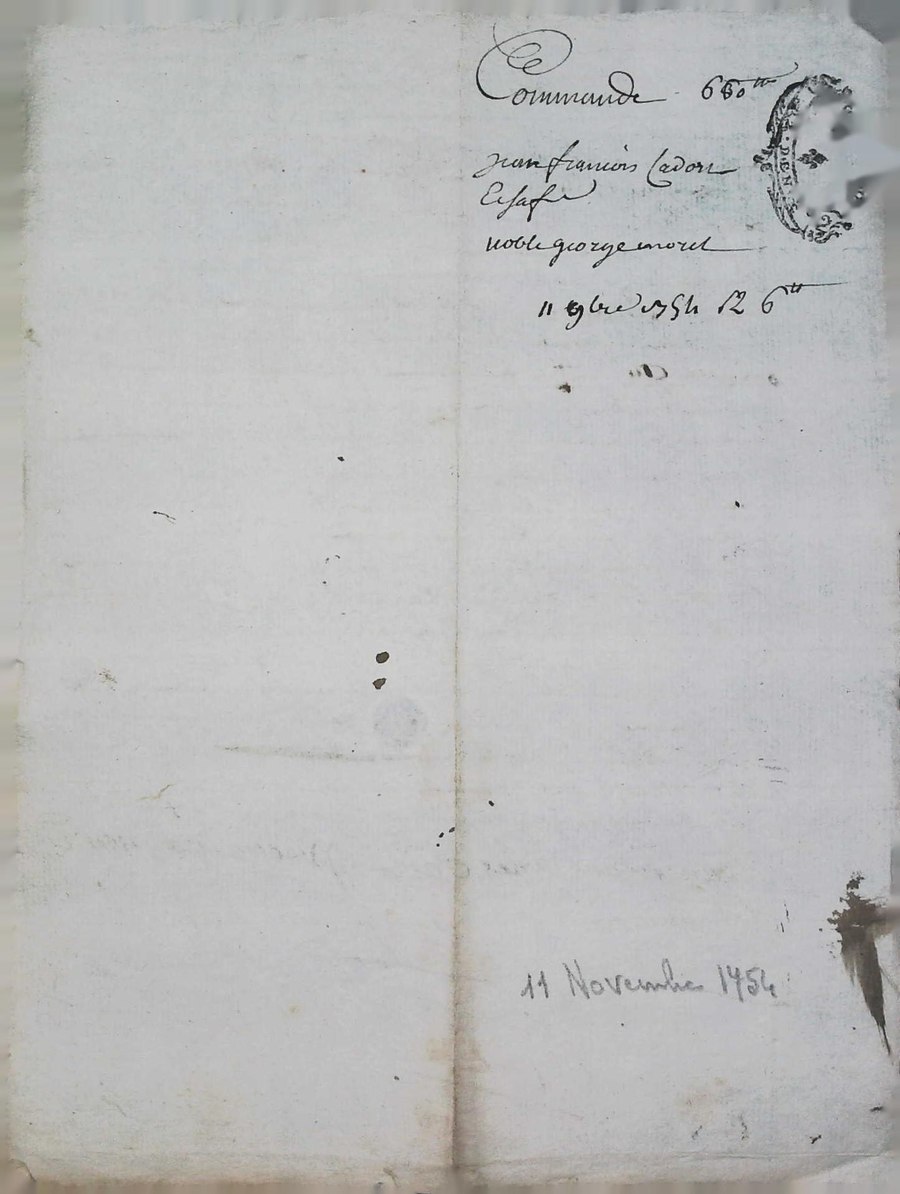 Commande 680tt
jean francois Cadori
noble george morel
11 9bre 1754 R 6tt
.DEN
11 Novembre 1754